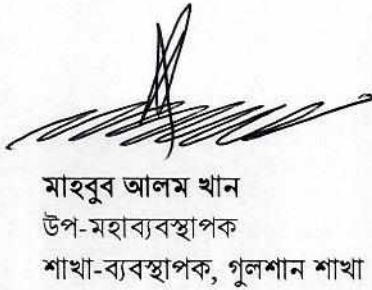 মাহবুব আলম খান
উপ-মহাব্যবস্থাপক
শাখা-ব্যবস্থাপক, গুলশান শাখা